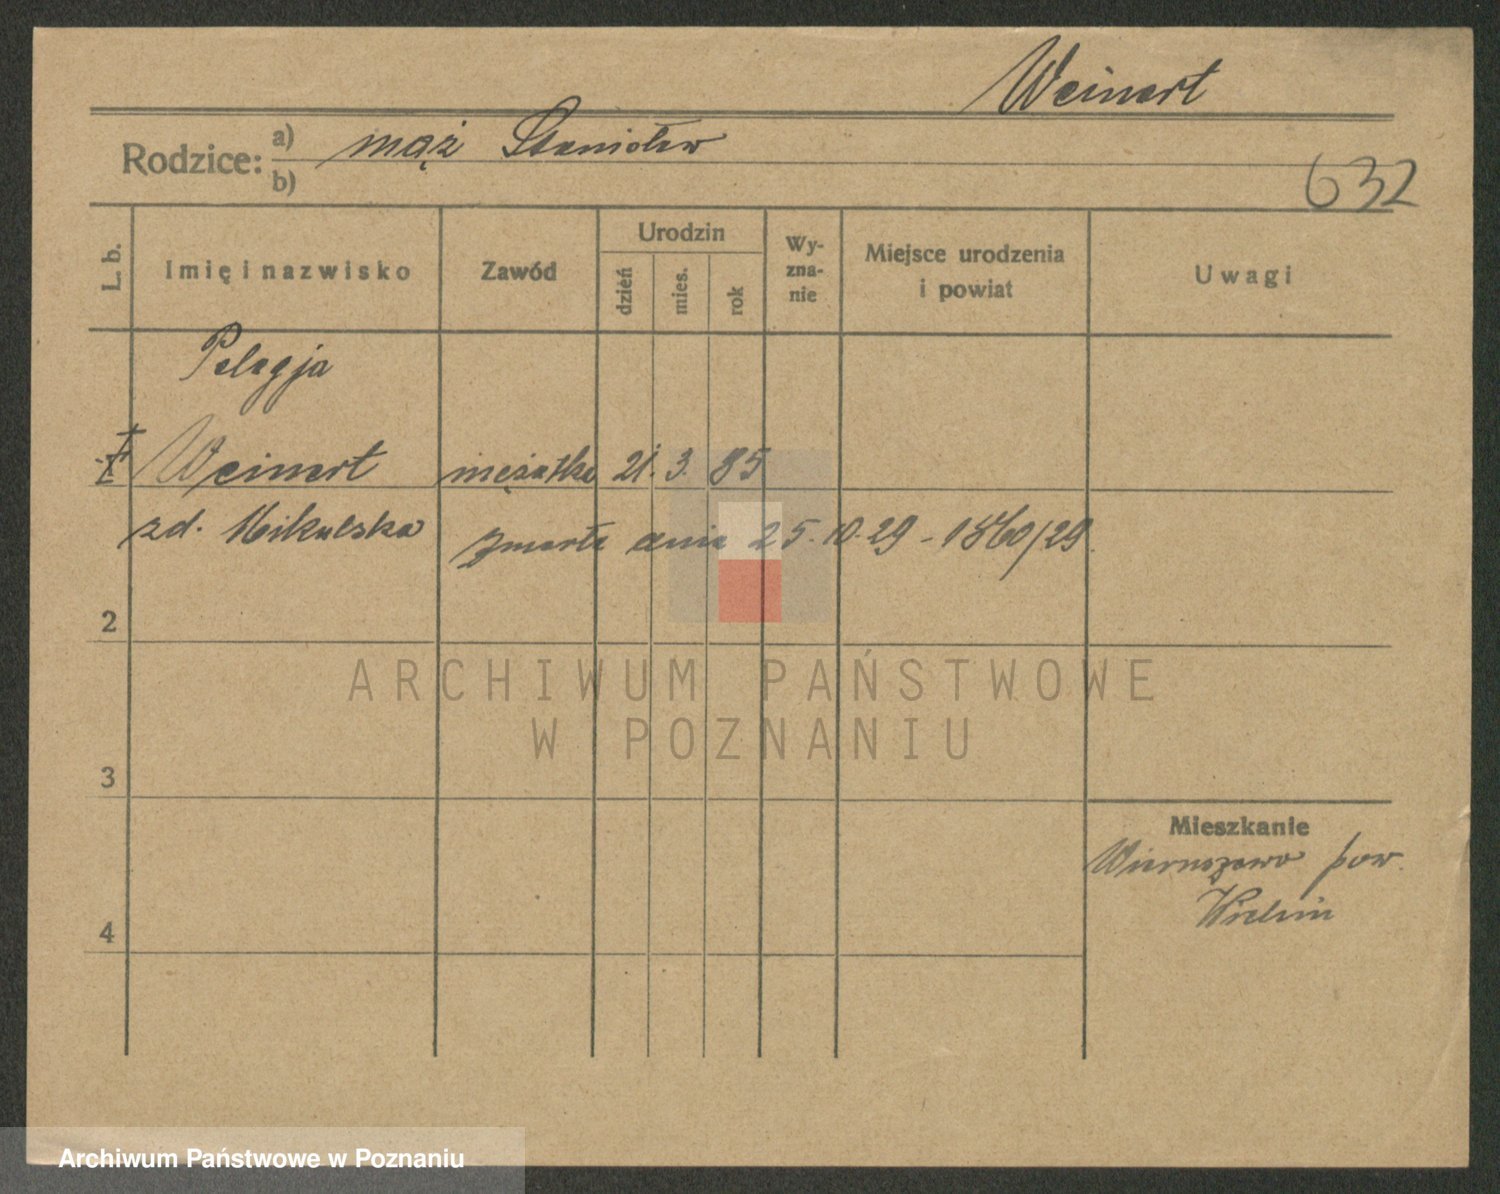 Weinert
Rodzice: a) mąż Stanisław
b)
632
L. b.
Imię i nazwisko
Zawód
Urodzin
dzień
mies.
rok
Wy-
zna-
nie
Miejsce urodzenia
i powiat
Uwagi
Pelagja
1 Weinert mężatka 21. 3. 85
zd. Mikulska zmarła dnia 25.10.29 - 1860/29.
2
ARCHIWUM PAŃSTWOWE
W POZNANIU
3
Mieszkanie
pow.
Wieluń
4
Archiwum Państwowe w Poznaniu